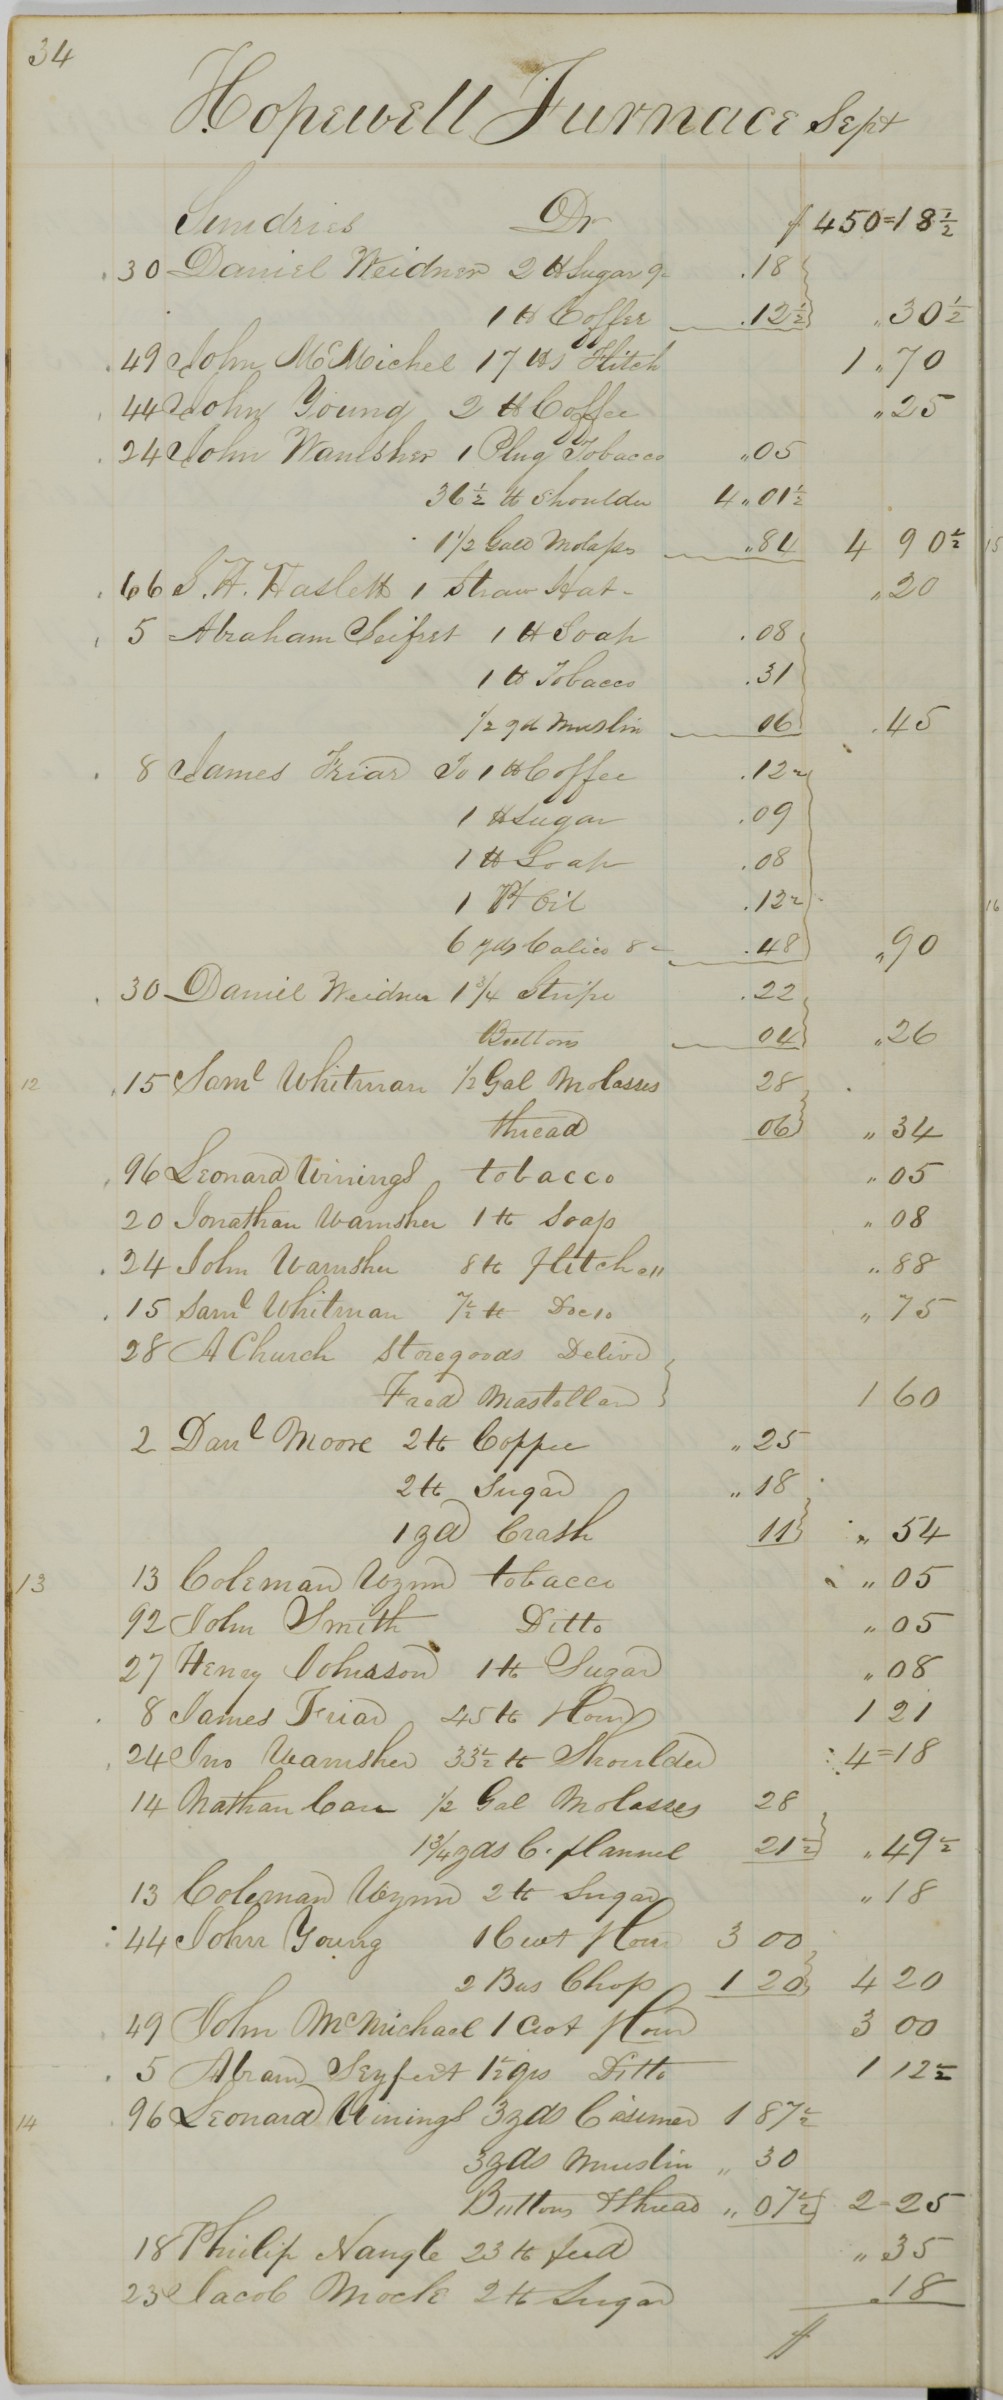 34
Hopewell Furnace Sept
Sundries Dr $ 450=18½
30 Daniel Weidner 2 ℔ Sugar 9- .18
1 ℔ Coffee .12½ „30½
49 John McMichel 17 ℔s Flitch 1„70
44 John Young 2 ℔ Coffee „25
24 John Wamsher 1 Plug Tobacco „05
36½ ℔ Shoulder 4„01½
1½ Galls Molasses „84 4 90½
66 S. H. Haslett 1 Straw Hat - „20
5 Abraham Seifret 1 ℔ Soap .08
1 ℔ Tobacco .31
½ yd Muslin 06 .45
8 James Friar To 1 ℔ Coffee .12½
1 ℔ Sugar .09
1 ℔ Soap .08
1 Pt Oil .12½
6 yds Calico 8- .48 „90
30 Daniel Weidner 1¾ Stripe .22
Buttons 04 „26
12 15 Saml Whitman ½ Gal Molasses 28
thread 06 „34
96 Leonard Winings tobacco „05
20 Jonathan Wamsher 1 ℔ Soap „08
24 John Wamsher 8 ℔ Flitch 11 „88
15 Saml Whitman 7½ ℔ Do „75
28 A Church Storegoods Delivd
Fred Mastellar 1 60
2 Danl Moore 2 ℔ Coffee „25
2 ℔ Sugar „18
1 yd Crash 11 „54
13 13 Coleman Wynn tobacco „05
92 John Smith Ditto „05
27 Henry Johnson 1 ℔ Sugar „08
8 James Friar 45 ℔ Flour 1 21
24 Jno Wamsher 33½ ℔ Shoulder 4=18
14 Nathan Care ½ Gal Molasses 28
1¾ yds C. flannel 21½ „49½
13 Coleman Wynn 2 ℔ Sugar „18
44 John Young 1 Cwt Flour 3 00
2 Bus Chop 1 20 4 20
49 John McMichael 1 Cwt Flour 3 00
5 Abram Seyfert 1½ qrs Ditto 1 12½
14 96 Leonard Winings 3 yds Casimer 1 87½
3 yds Muslin „30
Buttons & thread „07½ 2=25
18 Philip Nangle 23 ℔ feed „35
23 Jacob Mock 2 ℔ Sugar .18
$
15
16